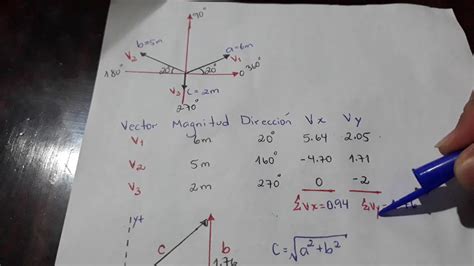 90°
b=5m
a=6m
V₂
V₁
180°
20°
20°
0
360°
V₃
C=2m
270°
Vector Magnitud Dirección Vx Vy
V₁ 6m 20° 5.64 2.05
V₂ 5m 160° -4.70 1.71
V₃ 2m 270° 0 -2
ΣVx=0.94 ΣVy=
y+
c
b
1.76
C=√a²+b²